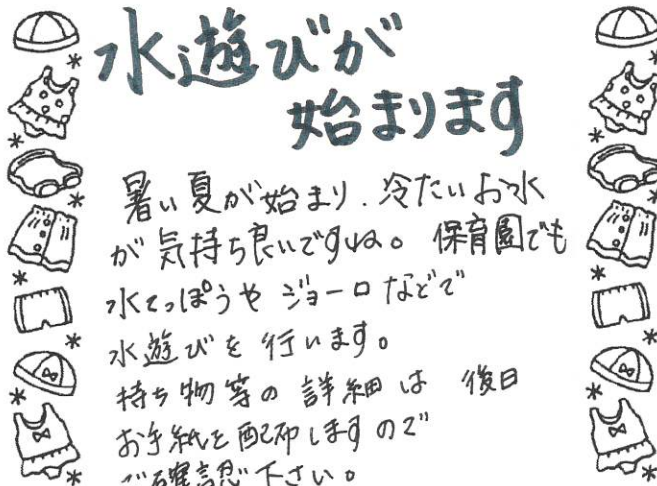 水遊びが
始まります
暑い夏が始まり、冷たいお水
が気持ち良いですね。保育園でも
水てっぽうや ジョーロなどで
水遊びを行います。
持ち物等の詳細は 後日
お手紙を配布しますので
ご確認下さい。